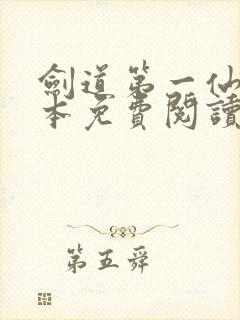 劍道第一仙
本免費閱讀
第五舜